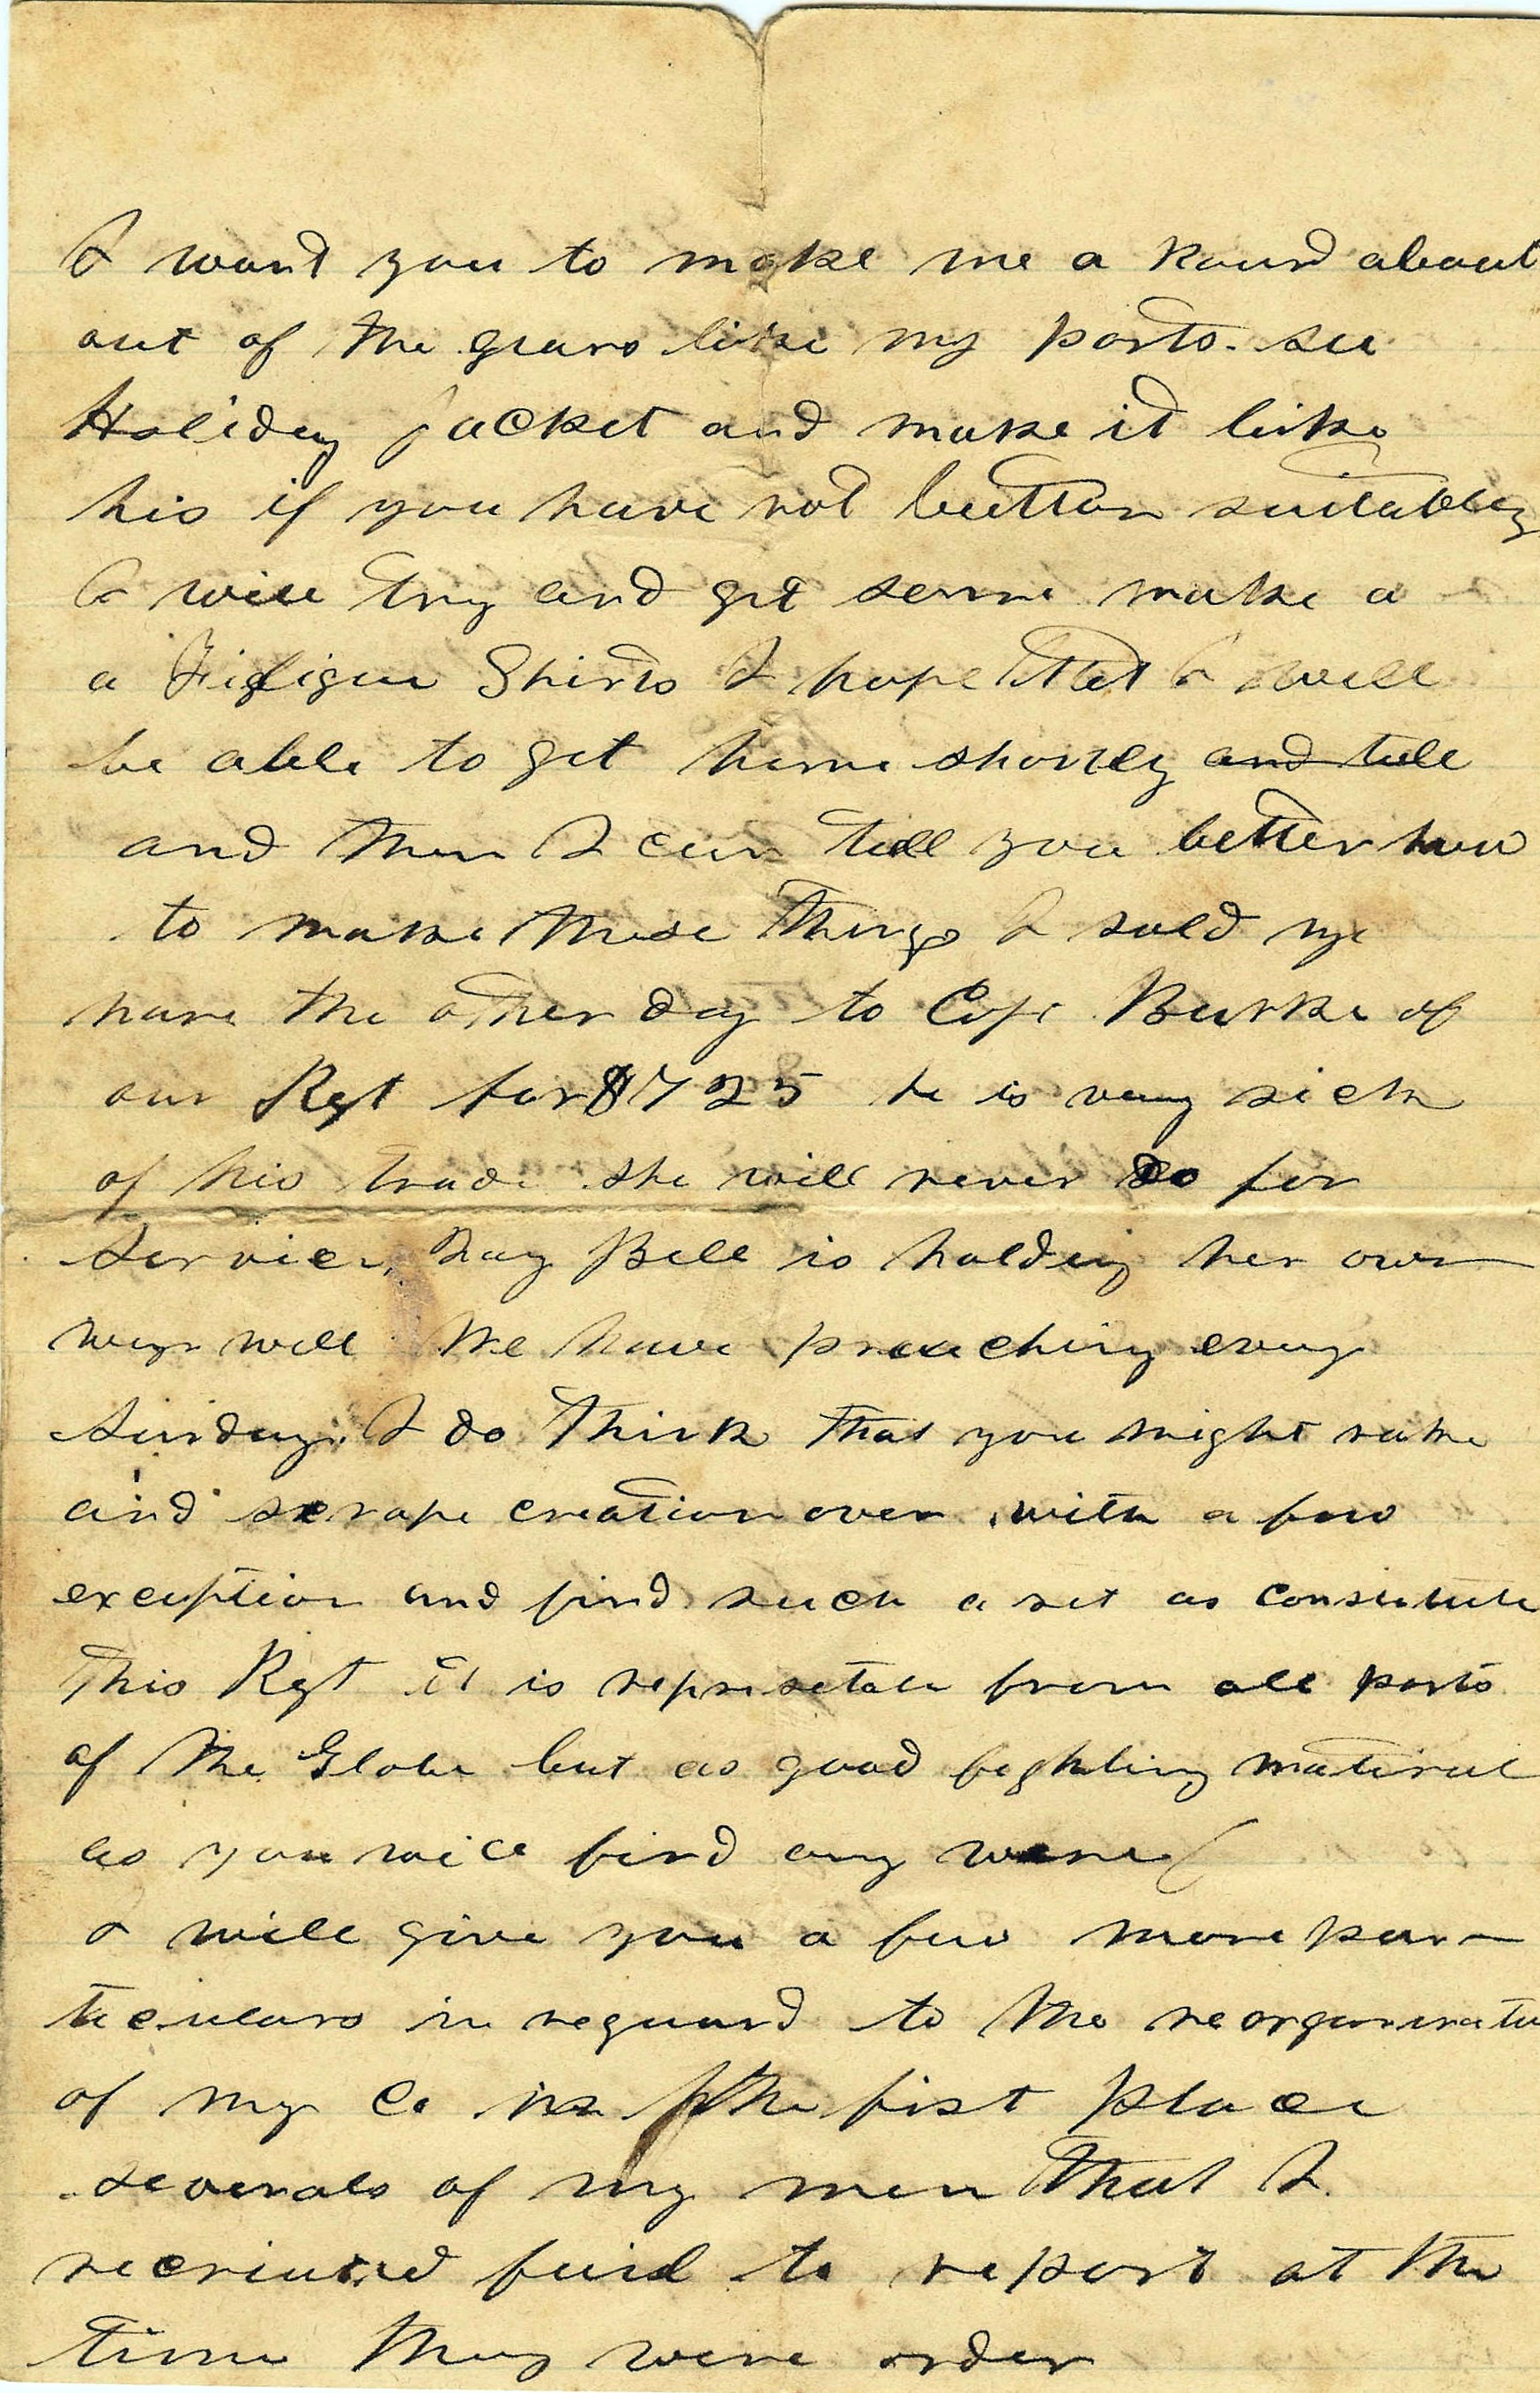 I want you to make me a Round about
out of the like my parts. see
Holidey Jacket and make it like
his if you have not button suitabley
I will try and get some make a
a Shirts I hope that I will
be able to get home shortley and tell
and then I can tell you better how
to make these things I sold my
the other day to Capt Burke of
our Regt for $725 he is very sick
of his trade she will never do for
Service, Bell is holding her own
very well We have preaching every
Sunday. I do think that you might rake
and scrape creation over with a few
exception and find such a set as constitute
this Regt it is from all parts
of the Globe but as good fighting material
as you will find any were
I will give you a few more par-
ticulars in reguard to the
of my Co in the fist place
severals of my men that I
recruited faild to report at the
time they were order